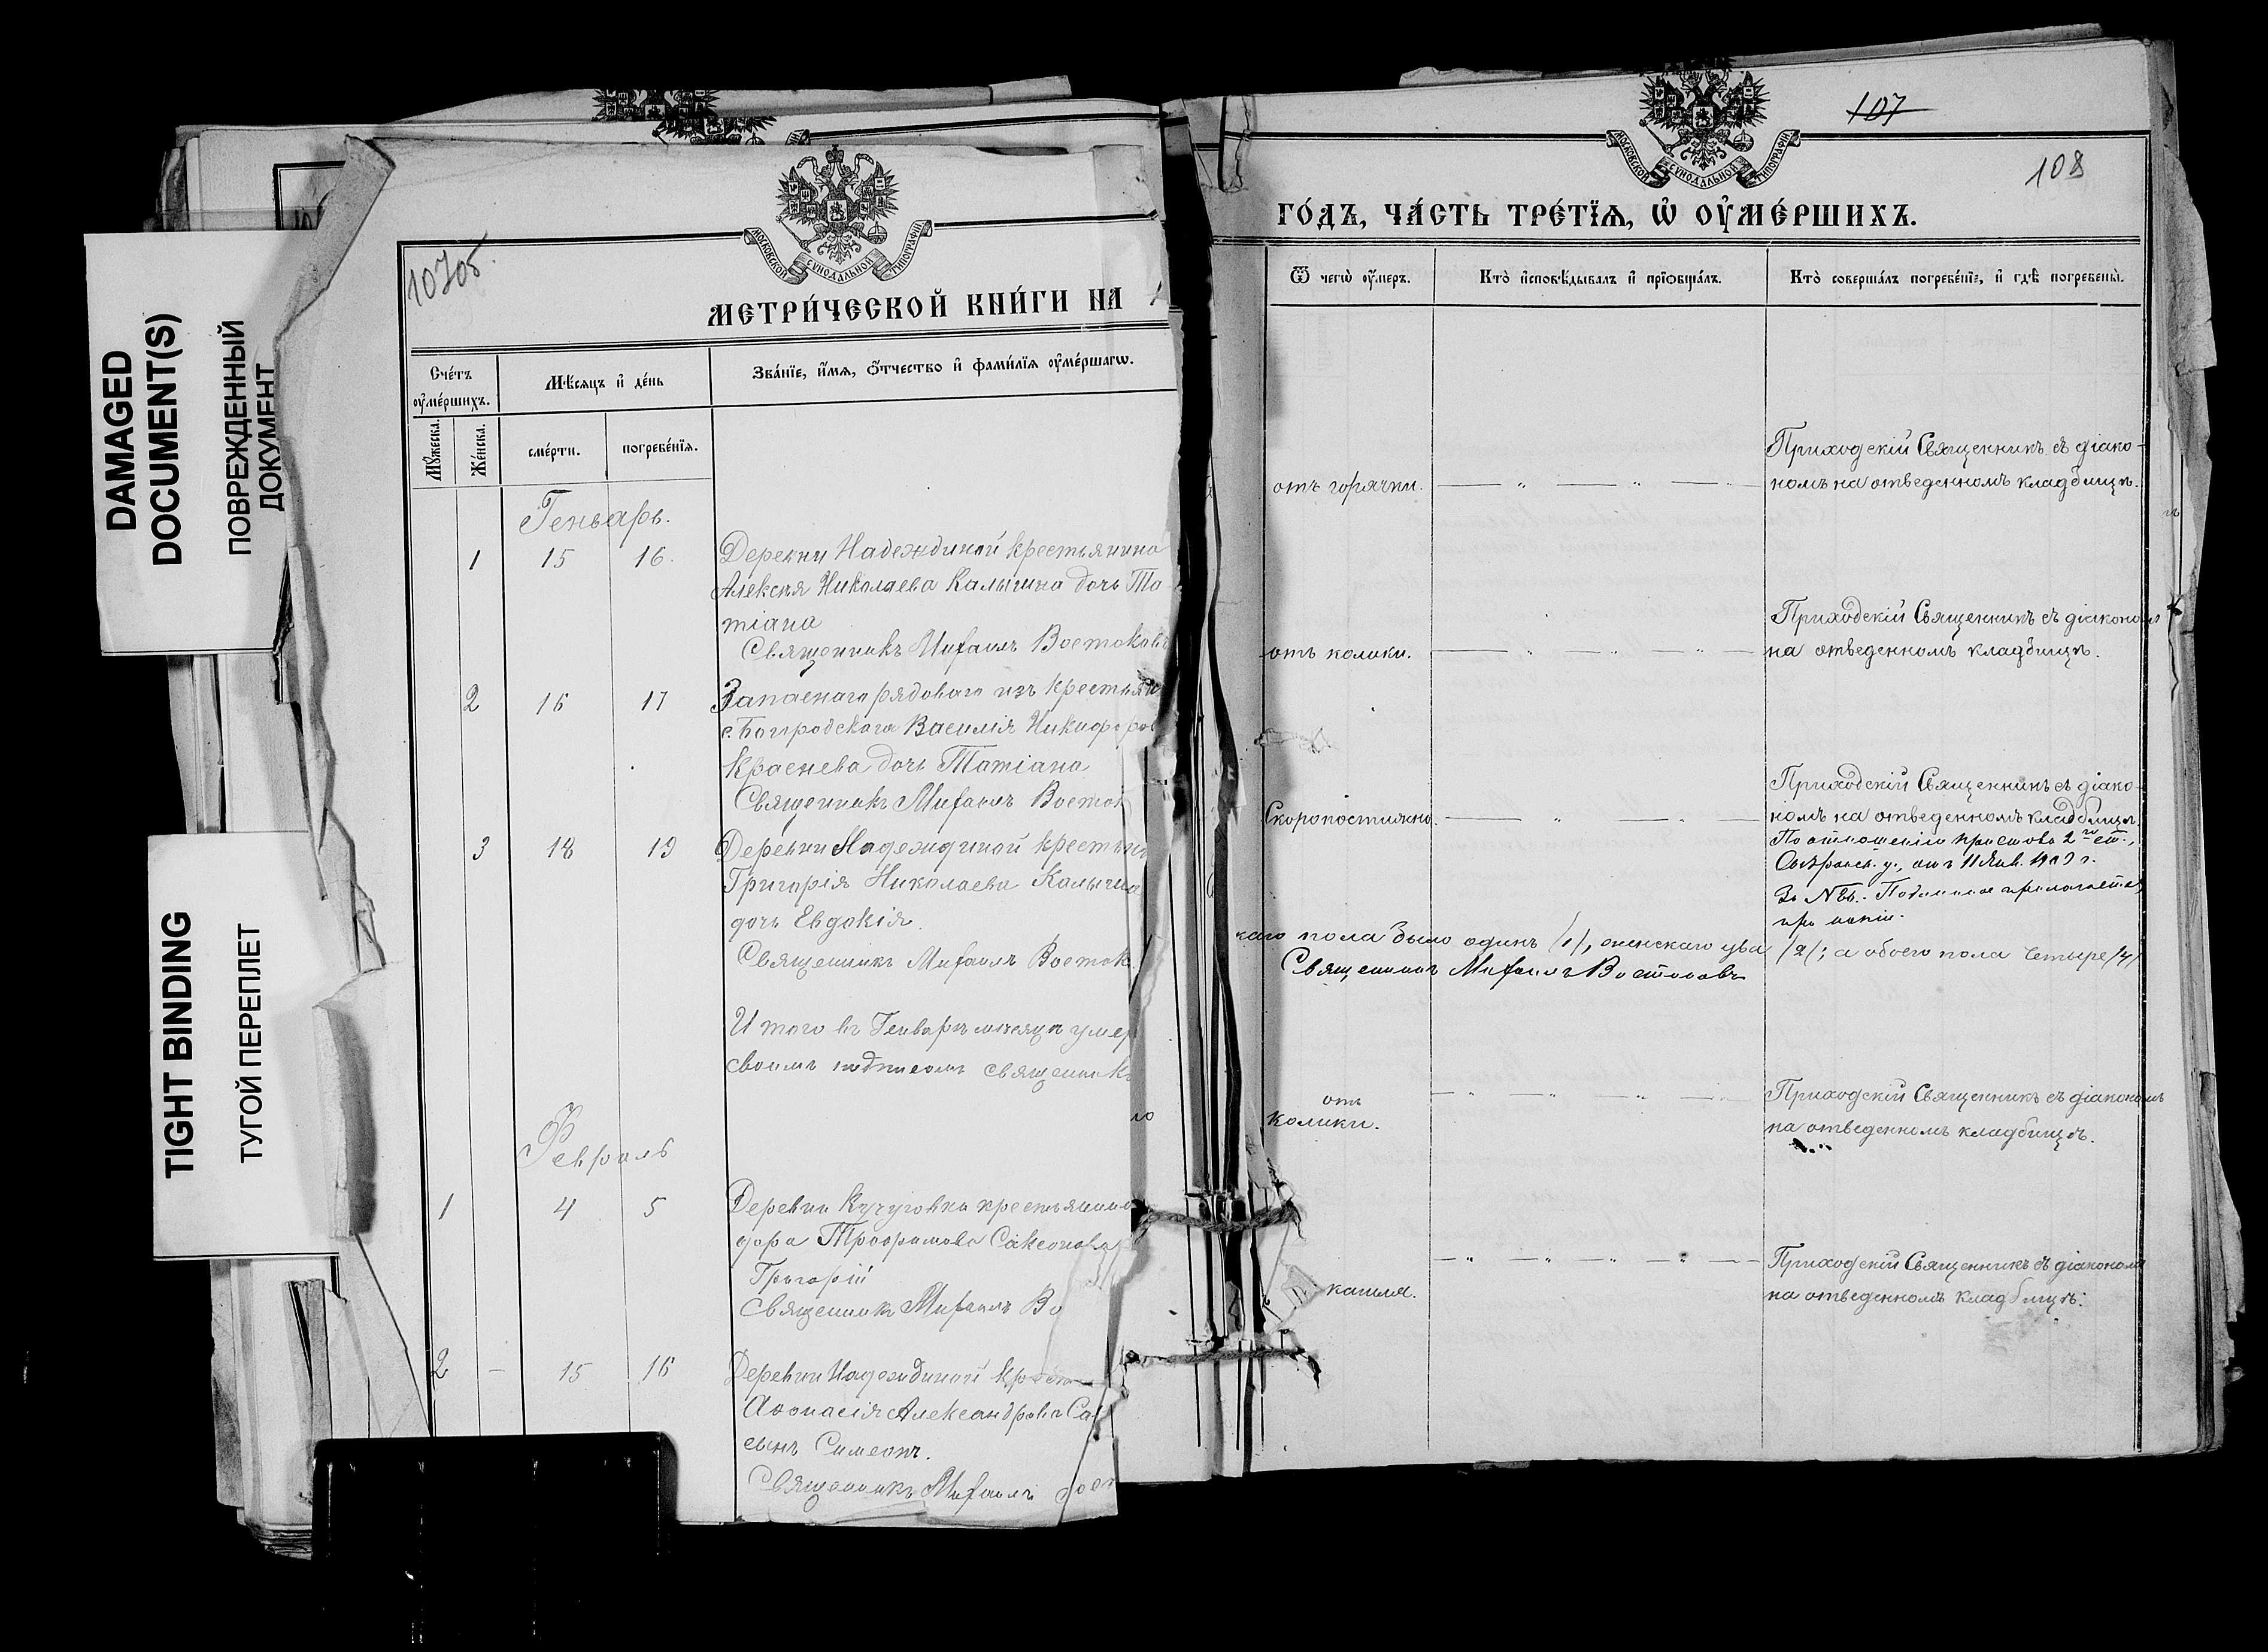 DAMAGED
DOCUMENT(S)
ПОВРЕЖДЕННЫЙ
ДОКУМЕНТ
TIGHT BINDING
ТУГОЙ ПЕРЕПЛЕТ
10705.
МОСКОВСКОЙ СУНОДАЛЬНОЙ ТИПОГРАФИИ
МЕТРИ́ЧЕСКОЙ КНИ́ГИ НА
Сче́тъ ᲂу҆ме́ршихъ.
Мѣ́сяцъ и҆ де́нь
Зва́нїе, и҆́мѧ, ѻ҆́тчество и҆ фами́лїѧ ᲂу҆ме́ршагѡ.
Мꙋжеска.
Же́нска.
сме́рти.
погребе́нїѧ.
Генварь.
1 15 16. Деревни Надеждиной крестьянина
Алексѣя Николаева Калыгина дочь Та
тіана
Священникъ Михаилъ Востоковъ
2 16 17 Запаснаго рядоваго изъ крестьян
с. Богородскаго Василія Никифоров
Краснева дочь Татіана
Священникъ Михаилъ Восток
3 18 19 Деревни Надеждиной крестьян
Григорія Николаева Калыгина
дочь Евдокія.
Священникъ Михаилъ Восток
Итого въ Генварѣ мѣсяцѣ умер
своимъ подписомъ священник
Февраль
1 4 5 Деревни Кучуговки крестьянина
дора Трофимова Саксонова
Григорій
Священникъ Михаилъ Во
2 – 15 16 Деревни Надеждиной крест
Аѳонасія Александрова Са
сынъ Симеонъ.
Священникъ Михаилъ Вост
107
108
МОСКОВСКОЙ СУНОДАЛЬНОЙ ТИПОГРАФИИ
ГО́ДЪ, ЧА́СТЬ ТРЕ́ТЇѦ, Ѡ҆ ОУ҆МЕ́РШИХЪ.
Ѿ чегѡ̀ ᲂу҆́меръ.
Кто̀ и҆сповѣ́дывалъ и҆ прїѡбща́лъ.
Кто̀ соверша́лъ погребе́нїе, и҆ гдѣ̀ погребены̀.
отъ горячки.
Приходскій Священникъ съ діако-
номъ на отведенномъ кладбищѣ.
отъ колики.
Приходскій Священникъ съ діакономъ
на отведенномъ кладбищѣ.
Скоропостижно.
Приходскій Священникъ съ діако-
номъ на отведенномъ кладбищѣ.
По отношенію пристава 2го ст.,
у., отъ 11 Янв.
За №
при
каго пола было одинъ /1/, женскаго два /2/; а обоего пола четыре /4/
Священникъ Михаилъ Востоковъ
отъ
колики.
Приходскій Священникъ съ діакономъ
на отведенномъ кладбищѣ.
кашля.
Приходскій Священникъ съ діакономъ
на отведенномъ кладбищѣ.